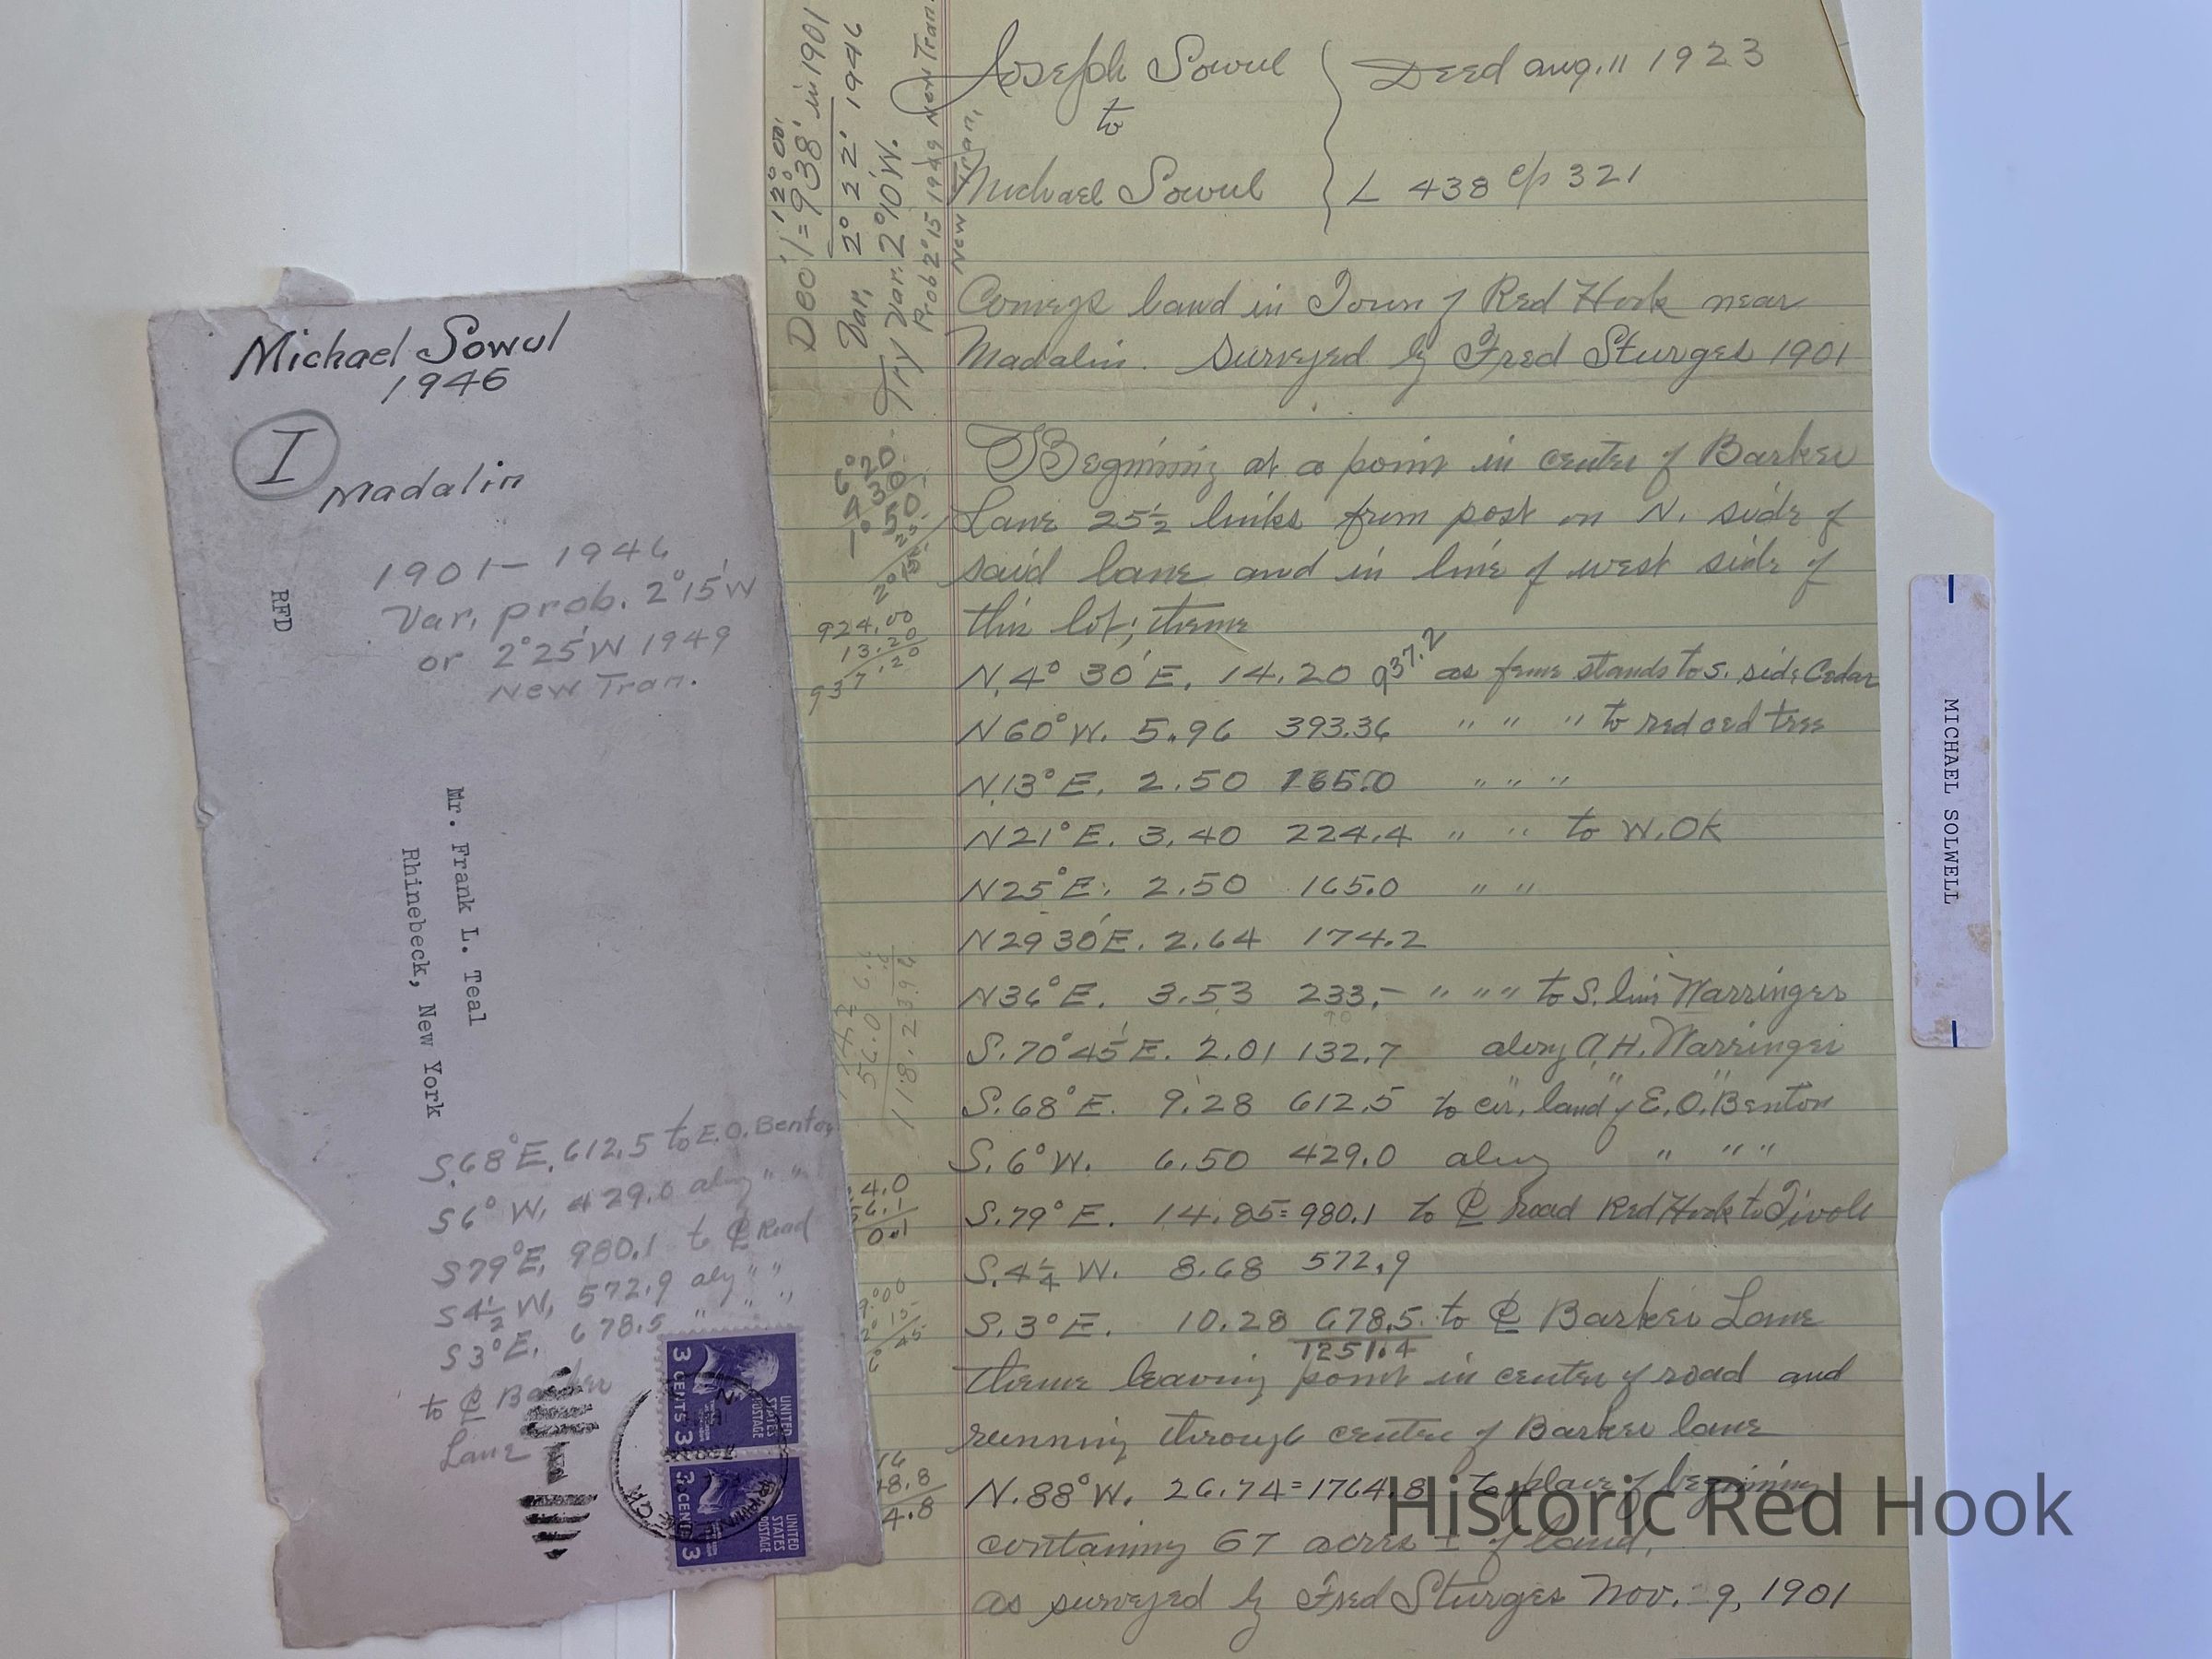 Michael Sowul
1946
I
Madalin
1901 - 1946
Var. prob. 2°15'W
or 2°25'W 1949
New Tran.
RFD
Mr. Frank L. Teal
Rhinebeck, New York
S.68°E. 612.5 to E.O. Benton
S6° W. 429.0 along " "
S79°E. 980.1 to ℄ Road
S4½ W. 572.9 alg " "
S3°E. 678.5 " " "
to ℄ Barker
Lane
UNITED STATES POSTAGE
3 CENTS 3
UNITED STATES POSTAGE
3 CENTS 3
12°00'
Dec 1 = 9°38' in 1901
Var. 2°22' 1946
Try Var. 2°10'W.
Prob 2°15 1949 New Tran.
New Tran.
6°20'
4 30'
1°50'
25'
2°15'
924.00
13.20
937.20
118.23
4.0
56.1
0.1
9°00
2°15
6°45
16
48.8
4.8
Joseph Sowul } Deed Aug. 11 1923
to
Michael Sowul } L 438 cp 321
Conveys land in Town of Red Hook near
Madalin. Surveyed by Fred Sturges 1901
Beginning at a point in center of Barker
Lane 25½ links from post on N. side of
said lane and in line of west side of
this lot; thence
N.4° 30'E. 14.20 937.2 as fence stands to S. side Cedar
N60°W. 5.96 393.36 " " " to red ced tree
N.13°E. 2.50 165.0 " " "
N21°E. 3.40 224.4 " " to W.OK
N25°E. 2.50 165.0 " "
N29 30'E. 2.64 174.2
N36°E. 3.53 233.- " " " to S. line Warringer
S.70°45'E. 2.01 132.7 along A.H. Warringer
S.68°E. 9.28 612.5 to cor. land of E.O. Benton
S.6°W. 6.50 429.0 along " " "
S.79°E. 14.85=980.1 to ℄ road Red Hook to Tivoli
S.4¼ W. 8.68 572.9
S.3°E. 10.28 678.5 to ℄ Barker Lane
1251.4
thence leaving point in center of road and
running through center of Barker lane
N.88°W. 26.74=1764.8 to place of beginning
containing 67 acres ± of land.
as surveyed by Fred Sturges Nov. 9, 1901
MICHAEL SOLWELL
Historic Red Hook